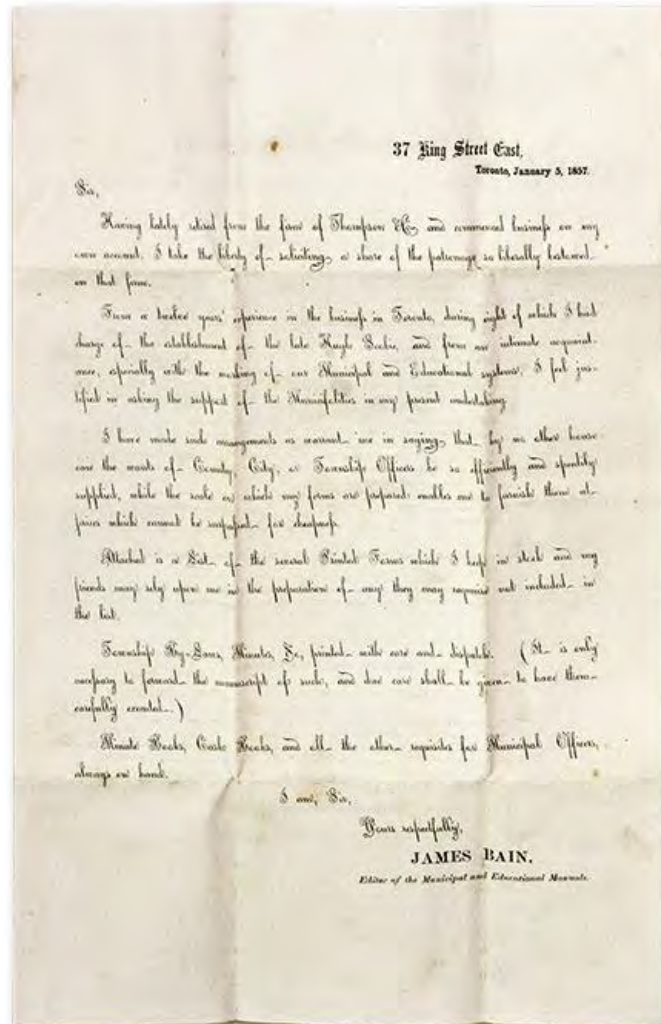 37 King Street East,
Toronto, January 5, 1857.
Sir,
Having lately retired from the firm of Thompson & Co, and commenced business on my
own account, I take the liberty of soliciting a share of the patronage so liberally bestowed
on that firm.
From a twelve years' experience in the business in Toronto, during eight of which I had
charge of the establishment of the late Hugh Scobie, and from an intimate acquaint-
ance, especially with the working of our Municipal and Educational systems, I feel jus-
tified in asking the support of the Municipalities in my present undertaking.
I have made such arrangements as warrant me in saying that by no other house
can the wants of County, City, or Township Officers be so efficiently and speedily
supplied, while the scale on which my forms are prepared enables me to furnish them at
prices which cannot be surpassed for cheapness.
Attached is a List of the several Printed Forms which I keep in stock and my
friends may rely upon me in the preparation of any they may require not included in
the list.
Township By-Laws, Minutes, &c, printed with care and dispatch. (It is only
necessary to forward the manuscript of such, and due care shall be given to have them
carefully executed.)
Minute Books, Cash Books, and all the other requisites for Municipal Officers,
always on hand.
I am, Sir,
Yours respectfully,
JAMES BAIN,
Editor of the Municipal and Educational Manuals.